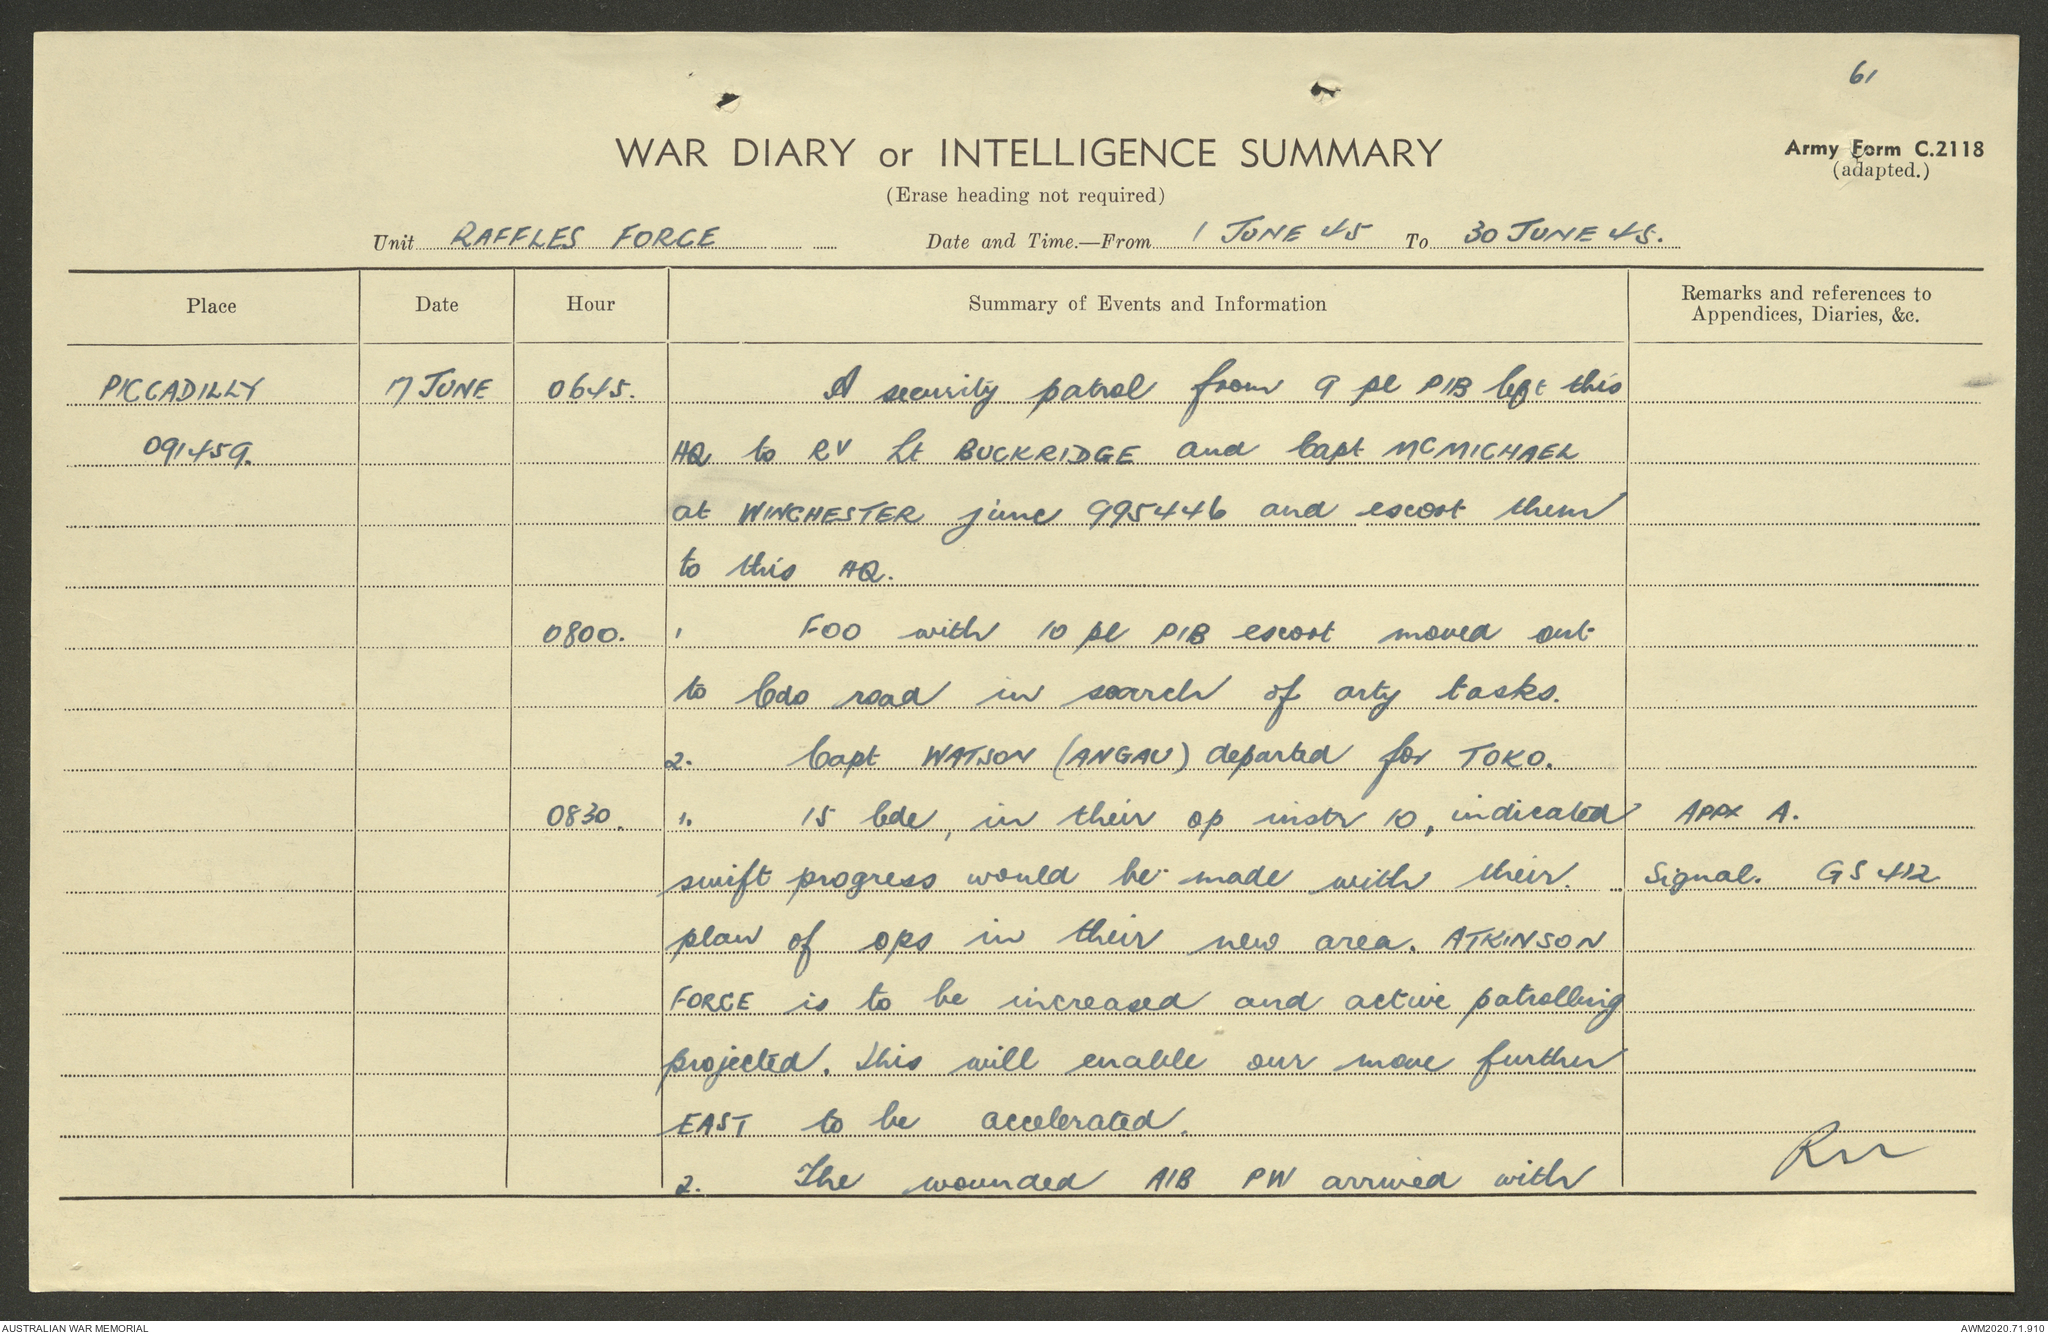 61
WAR DIARY or INTELLIGENCE SUMMARY
Army Form C.2118
(adapted.)
(Erase heading not required)
Unit RAFFLES FORCE Date and Time.—From 1 JUNE 45 To 30 JUNE 45.
Place Date Hour Summary of Events and Information Remarks and references to
Appendices, Diaries, &c.
PICCADILLY 7 JUNE 0645. A security patrol from 9 pl PIB left this
091459. HQ to RV Lt BUCKRIDGE and Capt MCMICHAEL
at WINCHESTER junc 995446 and escort them
to this HQ.
0800. 1 FOO with 10 pl PIB escort moved out
to Cdo road in search of arty tasks.
2. Capt WATSON (ANGAU) departed for TOKO.
0830. 1. 15 Bde, in their op instr 10, indicated APPX A.
swift progress would be made with their Signal. GS 412
plan of ops in their new area. ATKINSON
FORCE is to be increased and active patrolling
projected. This will enable our move further
EAST to be accelerated.
2. The wounded AIB PW arrived with
AUSTRALIAN WAR MEMORIAL
AWM2020.71.910